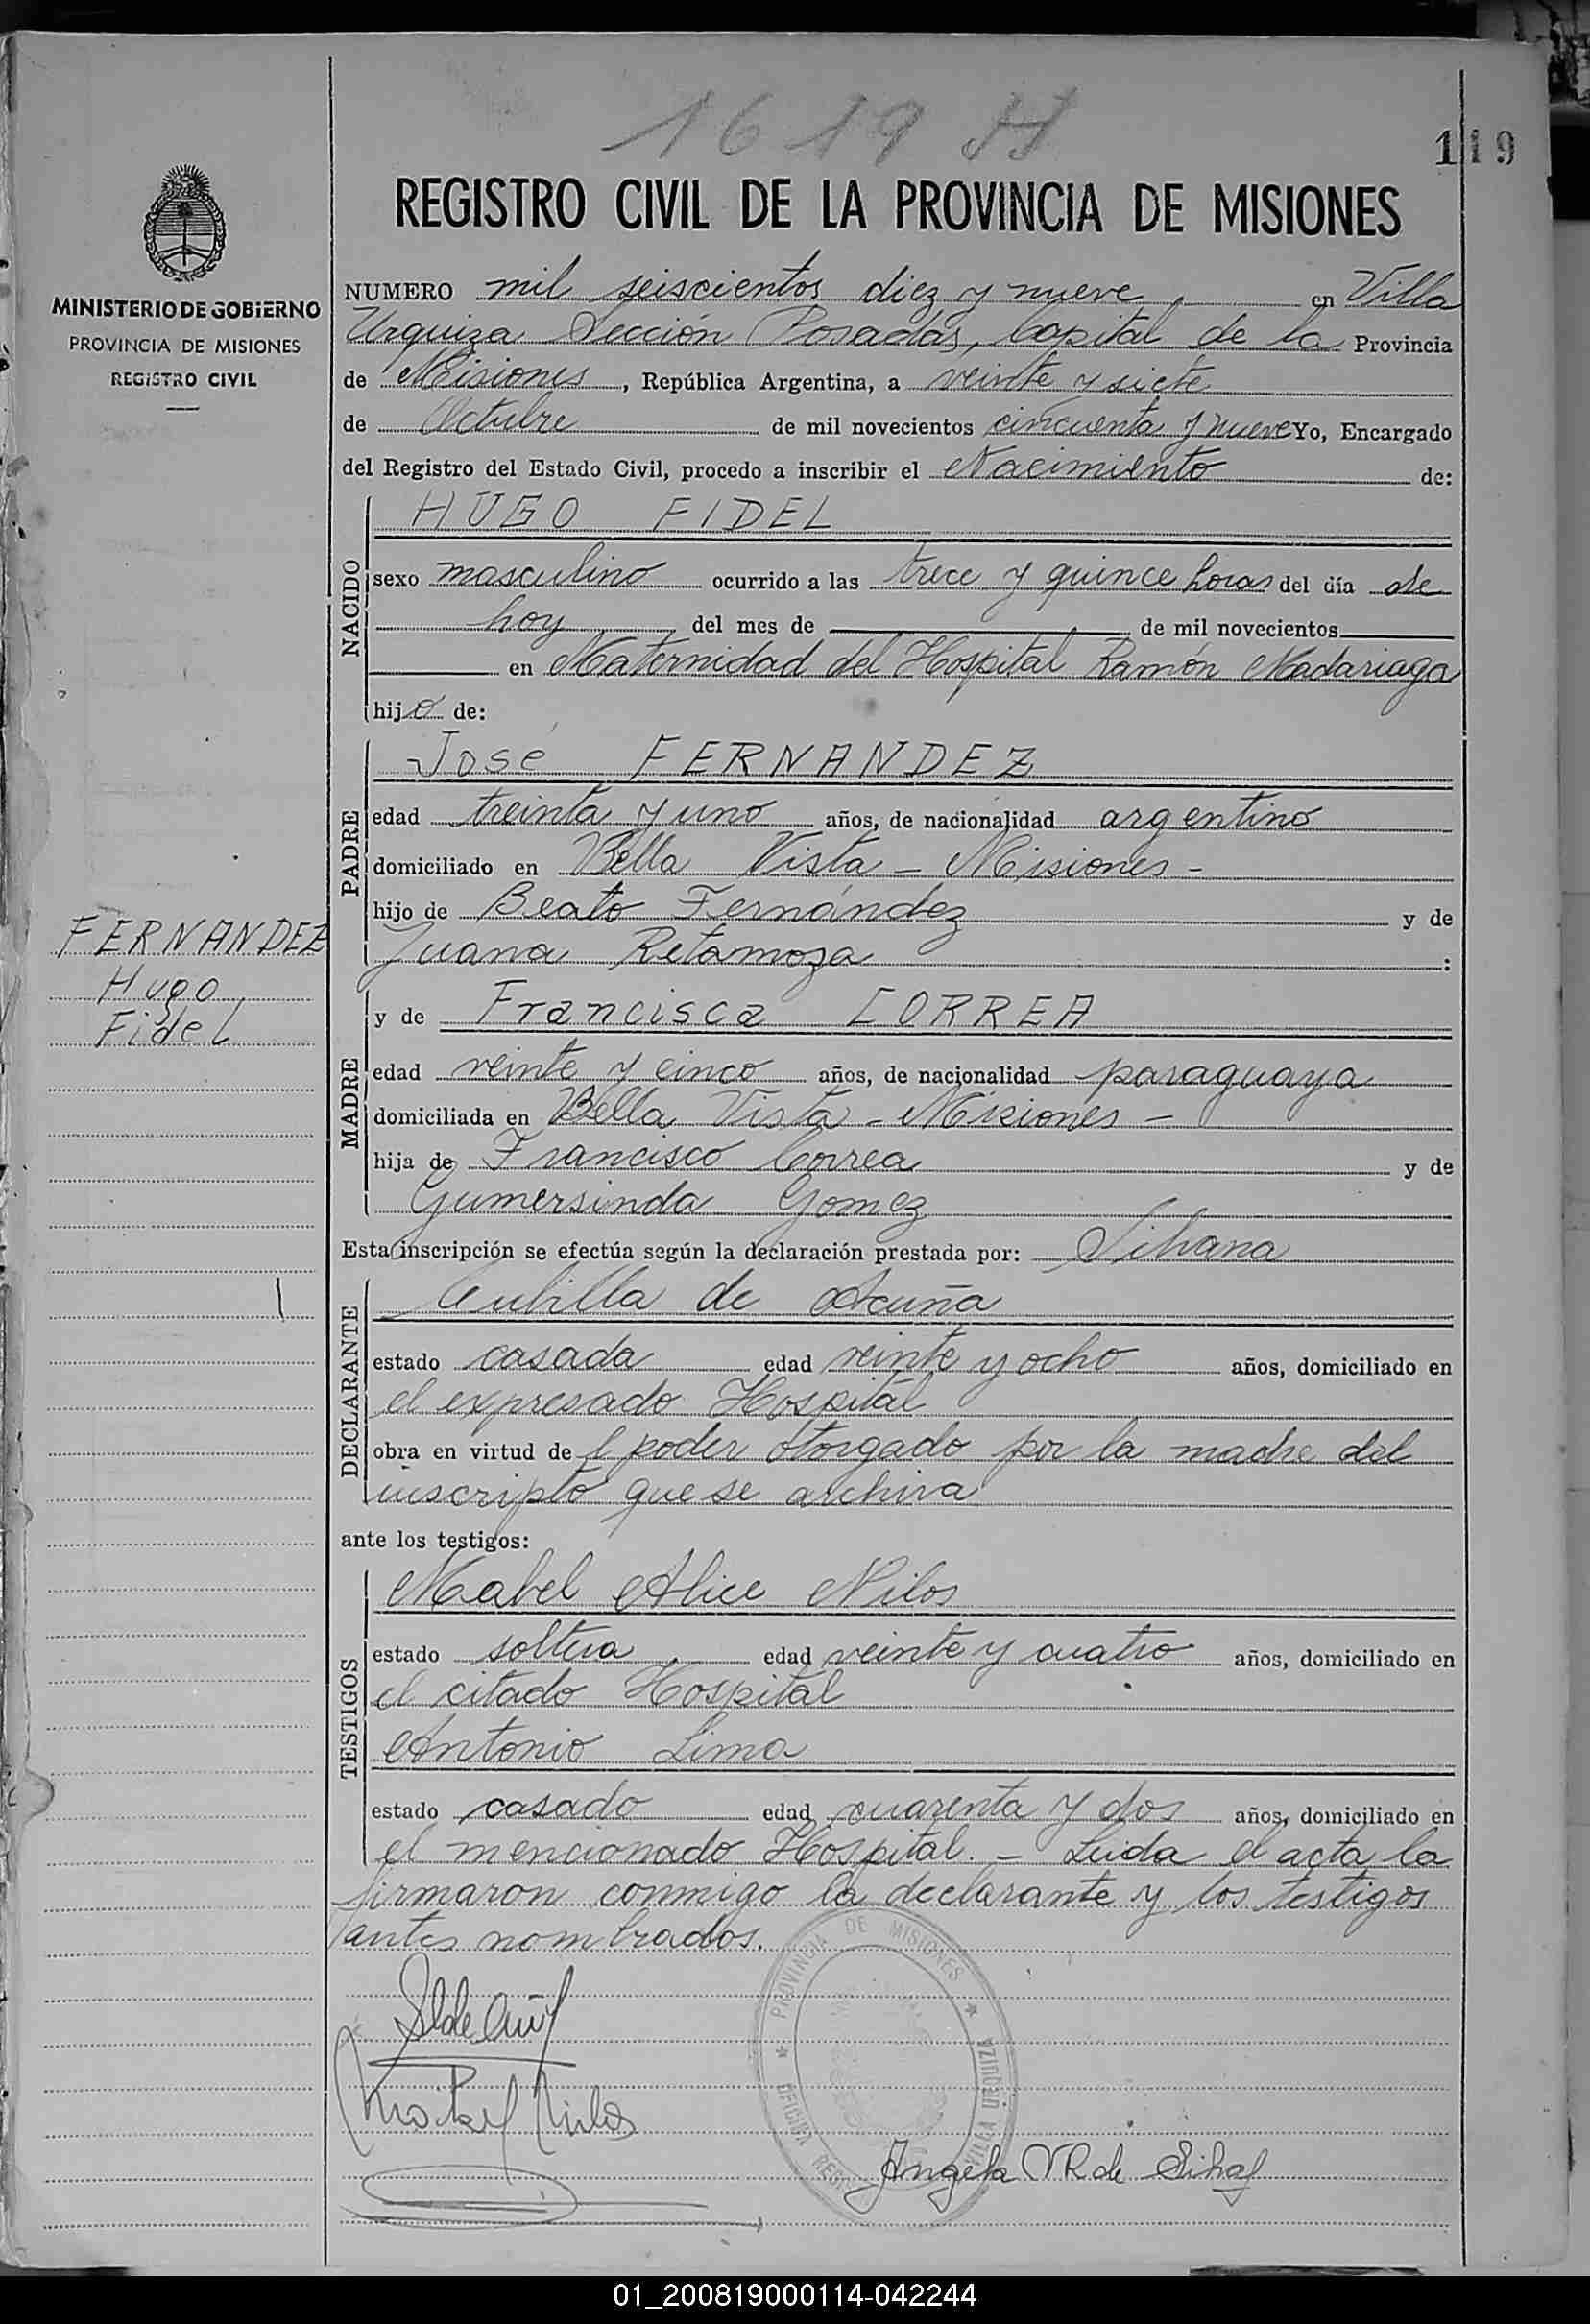 1619 H
119
MINISTERIO DE GOBIERNO
PROVINCIA DE MISIONES
REGISTRO CIVIL
REGISTRO CIVIL DE LA PROVINCIA DE MISIONES
NUMERO mil seiscientos diez y nueve, en Villa
Urquiza Seccion Posadas, Capital de la Provincia
de Misiones, República Argentina, a veinte y siete
de Octubre de mil novecientos cincuenta y nueve Yo, Encargado
del Registro del Estado Civil, procedo a inscribir el Nacimiento de:
NACIDO
HUGO FIDEL
sexo masculino ocurrido a las trece y quince horas del día de
hoy del mes de de mil novecientos
en Maternidad del Hospital Ramón Madariaga
hijo de:
PADRE
José FERNANDEZ
edad treinta y uno años, de nacionalidad argentino
domiciliado en Bella Vista - Misiones -
hijo de Beato Fernández y de
Juana Retamoza :
FERNANDEZ
Hugo
Fidel
MADRE
y de Francisca CORREA
edad veinte y cinco años, de nacionalidad paraguaya
domiciliada en Bella Vista - Misiones -
hija de Francisco Correa y de
Gumersinda Gomez
Esta inscripción se efectúa según la declaración prestada por: Silvana
DECLARANTE
Cubilla de Acuña
estado casada edad veinte y ocho años, domiciliado en
el expresado Hospital
obra en virtud de l poder otorgado por la madre del
inscripto que se archiva
ante los testigos:
TESTIGOS
Mabel Alice Nilos
estado soltera edad veinte y cuatro años, domiciliado en
el citado Hospital
Antonio Lima
estado casado edad cuarenta y dos años, domiciliado en
el mencionado Hospital. - Leida el acta la
firmaron conmigo la declarante y los testigos
antes nombrados.
PROVINCIA DE MISIONES
OFICINA
VILLA URQUIZA
Angela
01_200819000114-042244